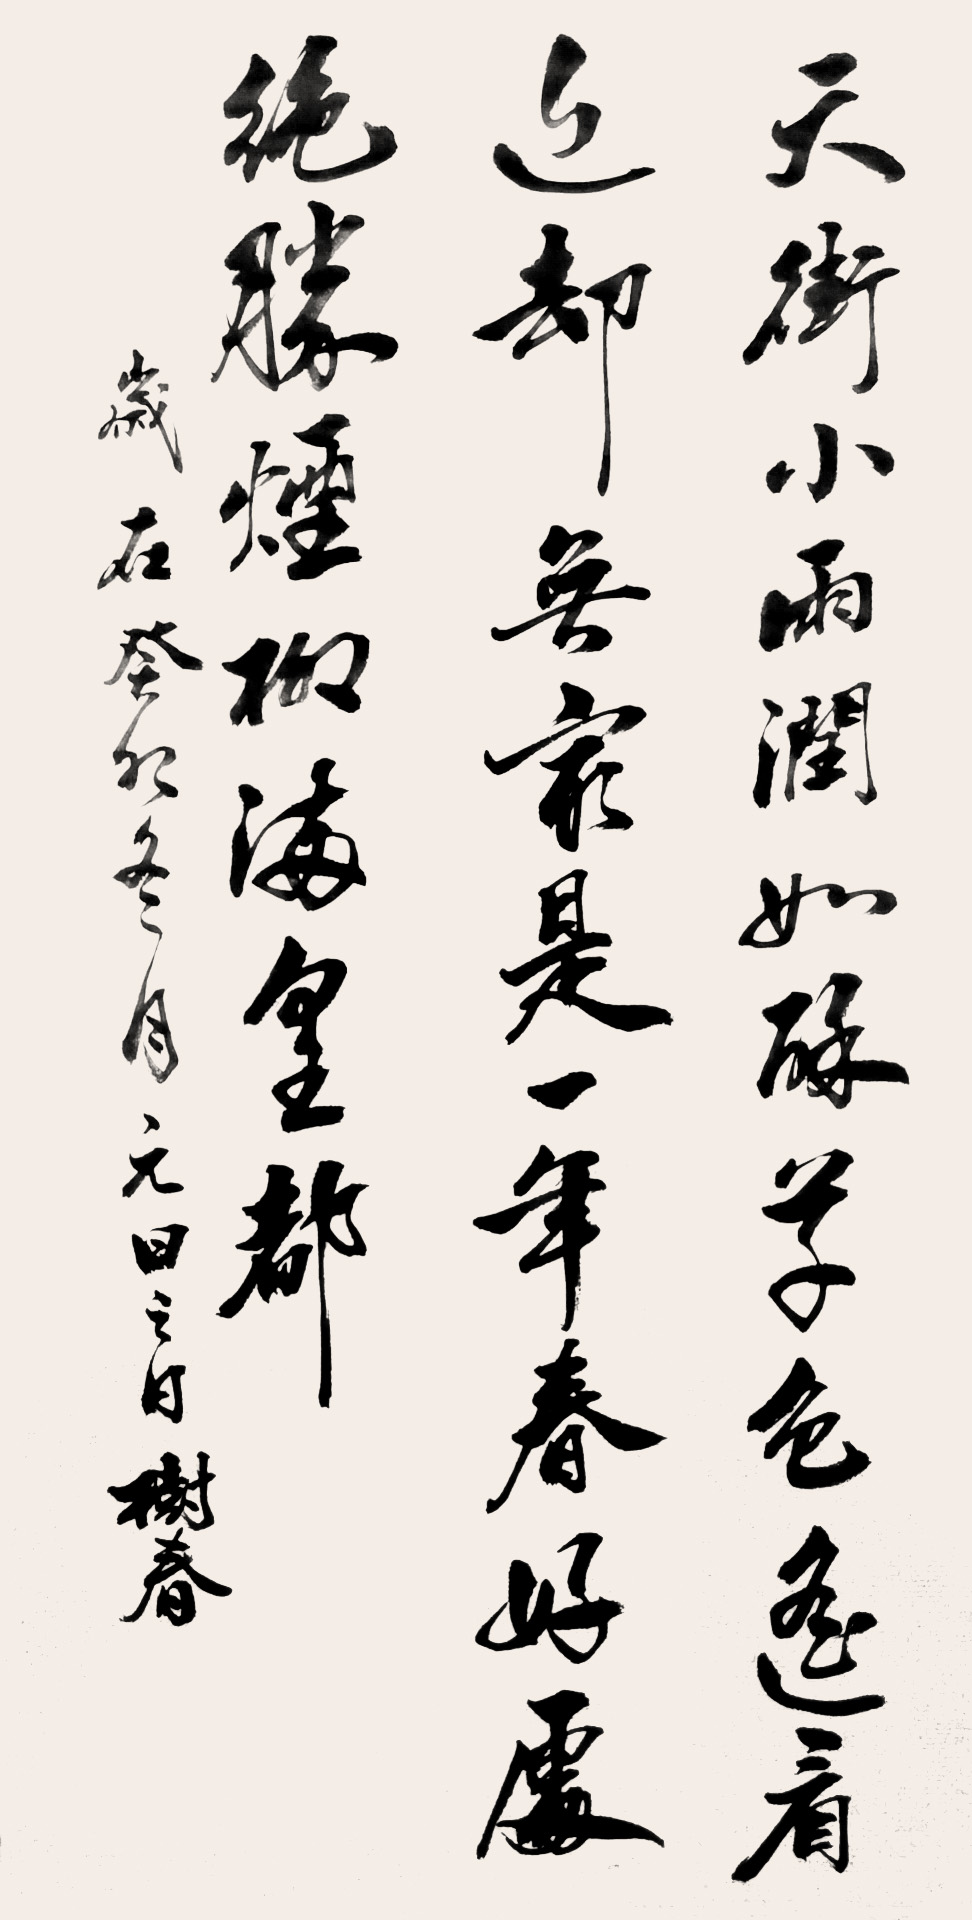 天街小雨潤如酥草色遙看
近却無最是一年春好處
絕勝煙柳滿皇都
歲在癸卯冬月元日之日樹春